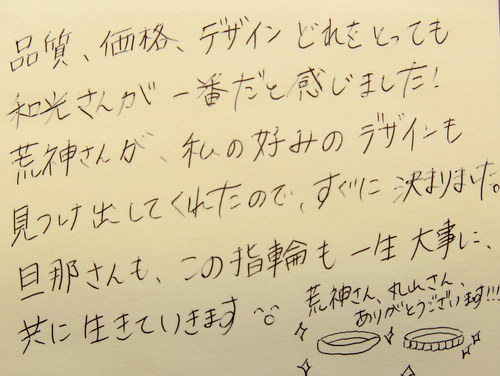 品質、価格、デザインどれをとっても
和光さんが一番だと感じました!
荒神さんが、私の好みのデザインも
見つけ出してくれたので、すぐに決まりました。
旦那さんも、この指輪も一生大事に、
共に生きていきます
荒神さん、丸山さん、
ありがとうございます!!!